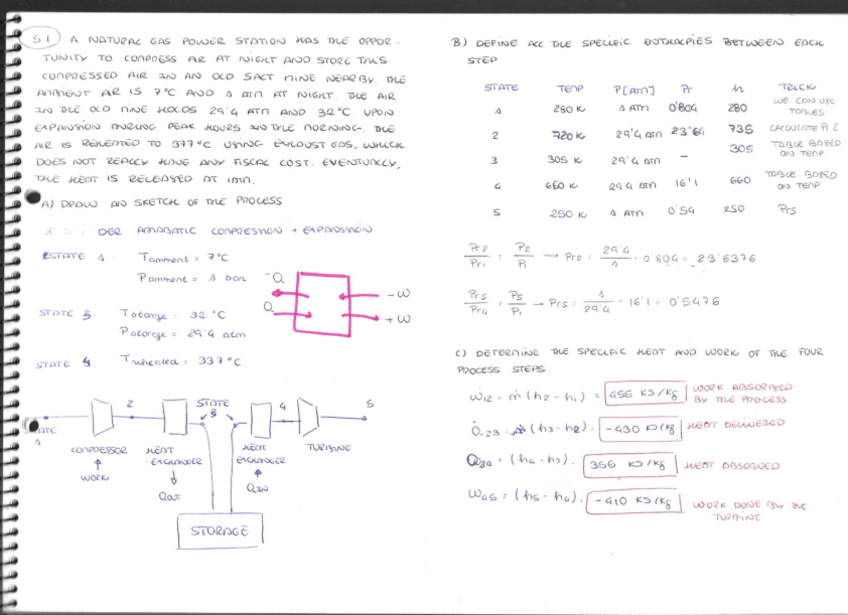 5.1 A NATURAL GAS POWER STATION HAS THE OPPOR-
TUNITY TO COMPRESS AIR AT NIGHT AND STORE THIS
COMPRESSED AIR IN AN OLD SALT MINE NEARBY. THE
AMBIENT AIR IS 7°C AND 1 ATM AT NIGHT. THE AIR
IN THE OLD MINE HOLDS 29'4 ATM AND 32°C. UPON
EXPANSION DURING PEAK HOURS IN THE MORNING. THE
AIR IS REHEATED TO 377°C USING EXHAUST GAS, WHICH
DOES NOT REALLY HAVE ANY FISCAL COST. EVENTUALLY,
THE HEAT IS RELEASED AT 1ATM.
A) DRAW AN SKETCH OF THE PROCESS
ADIABATIC COMPRESSION + EXPANSION
STATE 1. Tambient = 7°C
Pambient = 1 bar
STATE 3. Tstorage = 32 °C
Pstorage = 29'4 atm
STATE 4 Treheated = 337°C
-Q
Q
-W
+W
STATE
1
2
STATE
3
4
5
COMPRESSOR
HEAT
EXCHANGER
HEAT
EXCHANGER
TURBINE
WORK
QOUT
QIN
STORAGE
B) DEFINE ALL THE SPECIFIC ENTHALPIES BETWEEN EACH
STEP
STATE TEMP P[ATM] Pr h TRICK
1 280 K 1 ATM 0'804 280 WE CAN USE TABLES
2 720 K 29'4 ATM 23'64 735 CALCULATE Pr2
3 305 K 29'4 ATM - 305 TABLE BASED ON TEMP
4 650 K 29'4 ATM 16'1 660 TABLE BASED ON TEMP
5 250 K 1 ATM 0'54 250 Pr5
Pr2/Pr1 = P2/P1 → Pr2 = 29'4/1 · 0'804 = 23'6376
Pr5/Pr4 = P5/P1 → Pr5 = 1/29'4 · 16'1 = 0'5476
C) DETERMINE THE SPECIFIC HEAT AND WORK OF THE FOUR
PROCESS STEPS.
Ẇ12 = ṁ (h2 - h1) = 455 KJ/kg WORK ABSORBED BY THE PROCESS
Q̇23 = ṁ (h3 - h2) = -430 KJ/kg HEAT DELIVERED
Q34 = (h4 - h3) = 355 KJ/kg HEAT ABSORBED
W45 = (h5 - h4) = -410 KJ/kg WORK DONE BY THE TURBINE